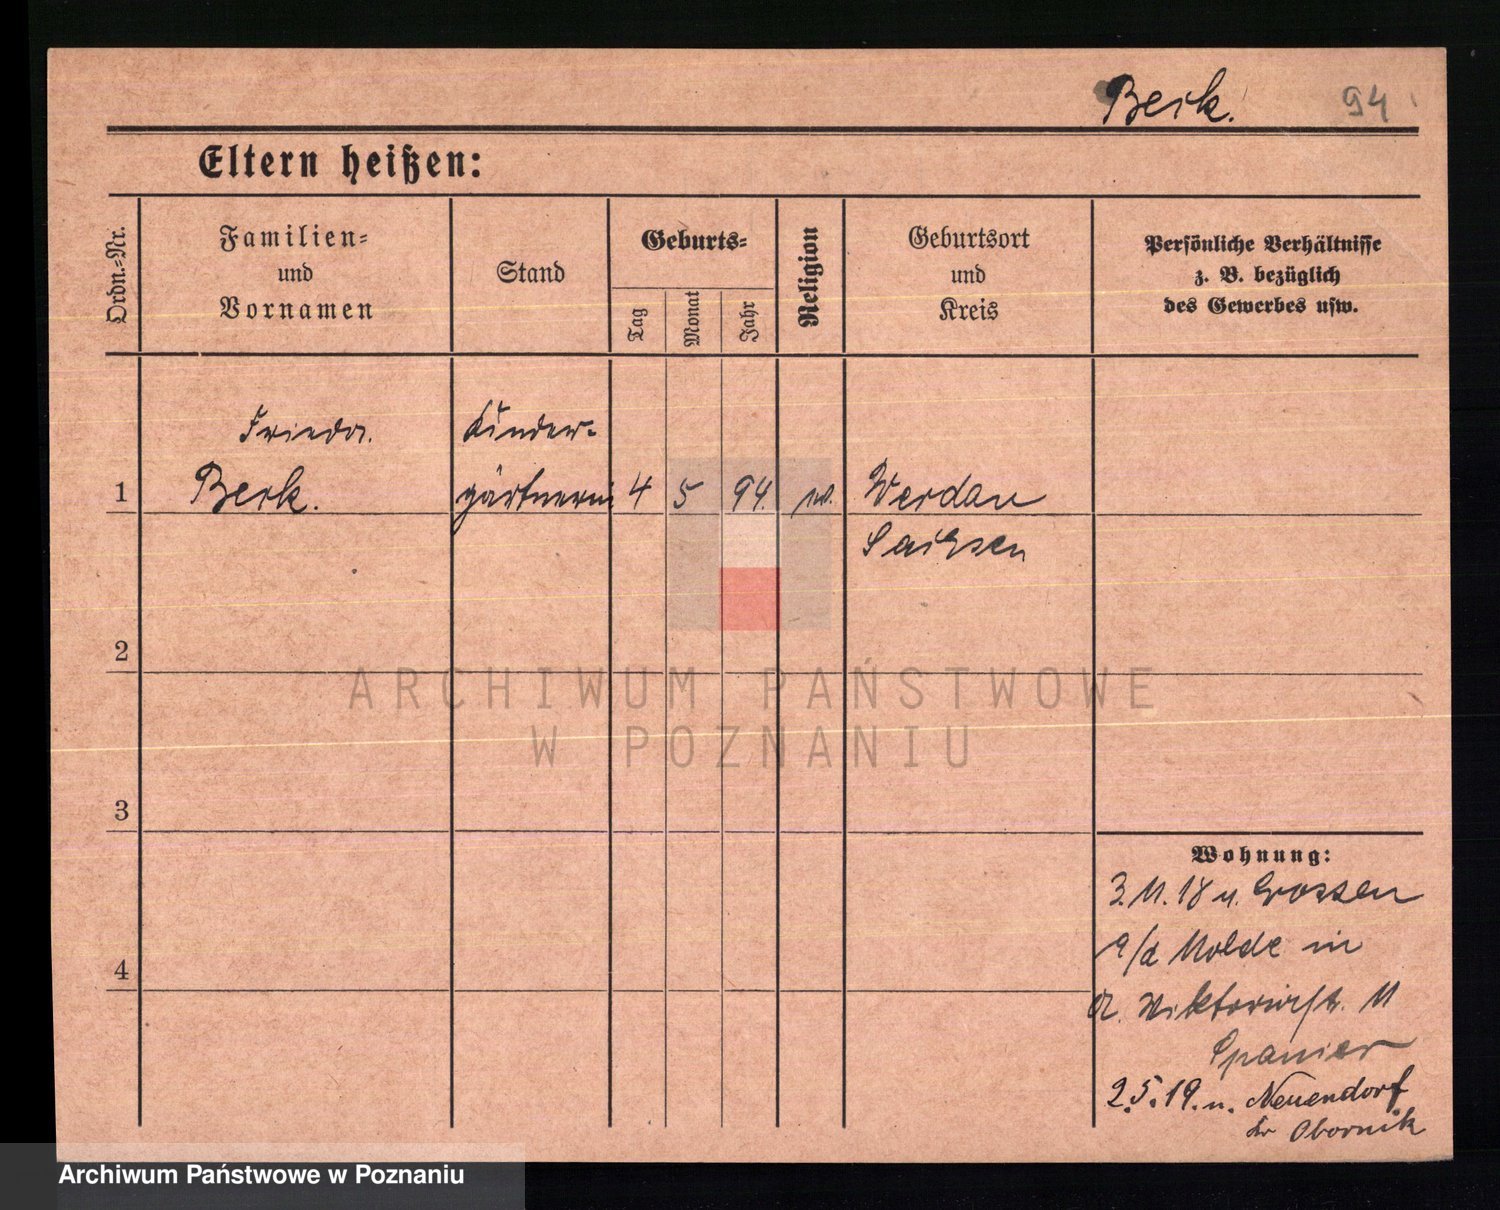 Berk. 94
Eltern heißen:
Ordn.-Nr.
Familien-
und
Vornamen
Stand
Geburts-
Tag
Monat
Jahr
Religion
Geburtsort
und
Kreis
Persönliche Verhältnisse
z. B. bezüglich
des Gewerbes usw.
Frieda Kinder-
1 Berk. gärtnerin 4 5 94. Werdau
Sachsen
2
ARCHIWUM PAŃSTWOWE
W POZNANIU
3
Wohnung:
3.11.18 v. Crossen
a/d Molde in
Viktoriastr. 11
Spanier
4
2.5.19. n. Neuendorf
Kr Obornik
Archiwum Państwowe w Poznaniu